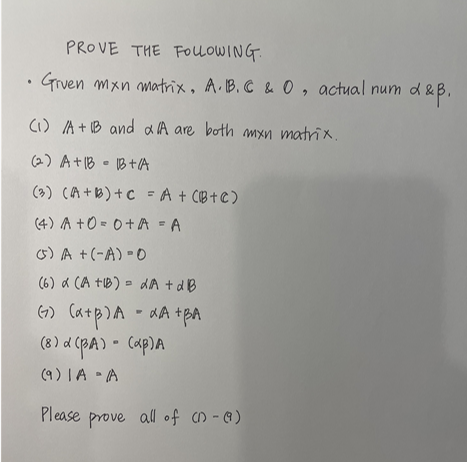 PROVE THE FOLLOWING.
• Given mxn matrix, A. B. C & O, actual num α & β.
(1) A + B and αA are both mxn matrix.
(2) A+B = B+A
(3) (A+B)+C = A + (B+C)
(4) A+O = O+A = A
(5) A +(-A) = O
(6) α(A+B) = αA + αB
(7) (α+β)A = αA + βA
(8) α(βA) = (αβ)A
(9) 1A = A
Please prove all of (1) - (9)